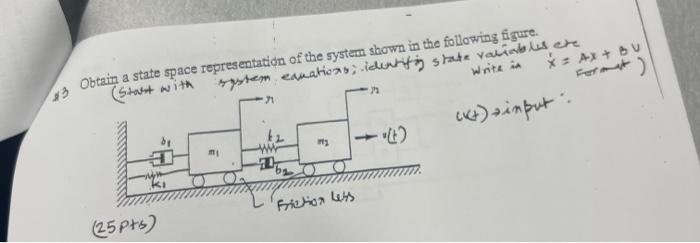 #3 Obtain a state space representation of the system shown in the following figure.
(Start with system equations; identify state variables etc
Write in ẋ = Ax + BU
Format)
u(t) → input
b1
m1
k1
k2
b2
m2
u(t)
Friction less
(25 pts)